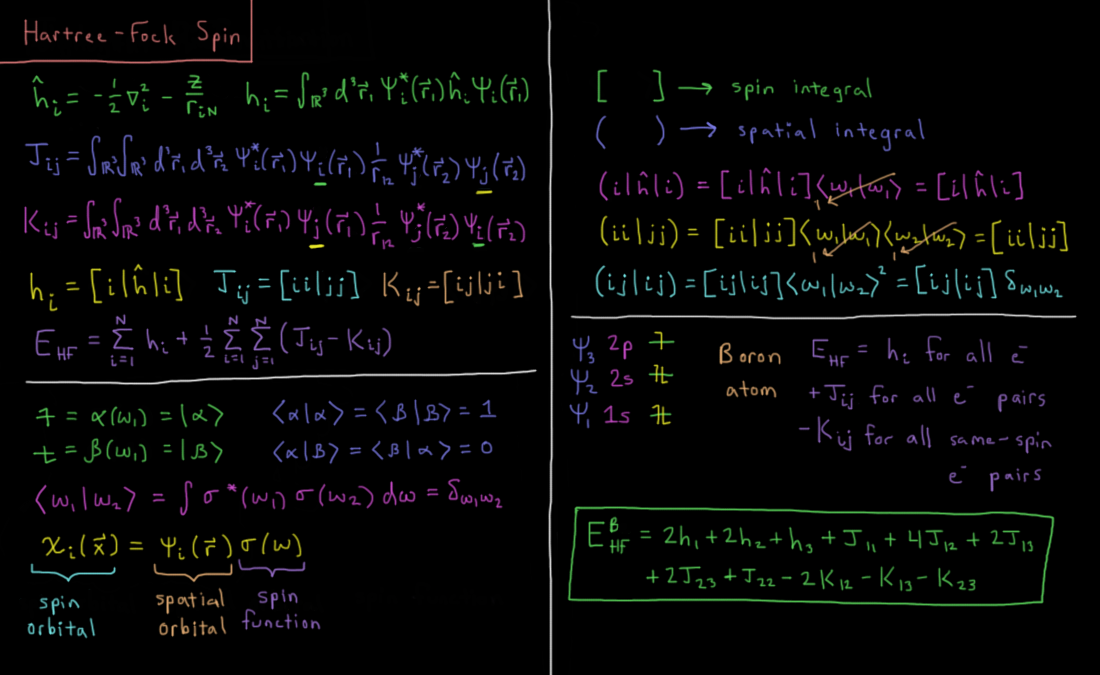 Hartree-Fock Spin
ĥᵢ = -½ ∇ᵢ² - Z/rᵢN   hᵢ = ∫ℝ³ d³r⃗₁ Ψᵢ*(r⃗₁) ĥᵢ Ψᵢ(r⃗₁)
Jᵢⱼ = ∫ℝ³ ∫ℝ³ d³r⃗₁ d³r⃗₂ Ψᵢ*(r⃗₁) Ψᵢ(r⃗₁) 1/r₁₂ Ψⱼ*(r⃗₂) Ψⱼ(r⃗₂)
Kᵢⱼ = ∫ℝ³ ∫ℝ³ d³r⃗₁ d³r⃗₂ Ψᵢ*(r⃗₁) Ψⱼ(r⃗₁) 1/r₁₂ Ψⱼ*(r⃗₂) Ψᵢ(r⃗₂)
hᵢ = [i|ĥ|i]   Jᵢⱼ = [ii|jj]   Kᵢⱼ = [ij|ji]
E_HF = Σᵢ₌₁ᴺ hᵢ + ½ Σᵢ₌₁ᴺ Σⱼ₌₁ᴺ (Jᵢⱼ - Kᵢⱼ)
↿ = α(ω₁) = |α⟩   ⟨α|α⟩ = ⟨β|β⟩ = 1
⇂ = β(ω₁) = |β⟩   ⟨α|β⟩ = ⟨β|α⟩ = 0
⟨ω₁|ω₂⟩ = ∫ σ*(ω₁) σ(ω₂) dω = δω₁ω₂
χᵢ(x⃗) = Ψᵢ(r⃗) σ(ω)
spin orbital
spatial orbital
spin function
[ ] → spin integral
( ) → spatial integral
(i|ĥ|i) = [i|ĥ|i]⟨ω₁|ω₁⟩ = [i|ĥ|i]
1
(ii|jj) = [ii|jj]⟨ω₁|ω₁⟩⟨ω₂|ω₂⟩ = [ii|jj]
1 1
(ij|ij) = [ij|ij]⟨ω₁|ω₂⟩² = [ij|ij] δω₁ω₂
Ψ₃ 2p ↿
Ψ₂ 2s ↿⇂
Ψ₁ 1s ↿⇂
Boron
atom
E_HF = hᵢ for all e⁻
+ Jᵢⱼ for all e⁻ pairs
- Kᵢⱼ for all same-spin
e⁻ pairs
E_HF^B = 2h₁ + 2h₂ + h₃ + J₁₁ + 4J₁₂ + 2J₁₃
+ 2J₂₃ + J₂₂ - 2K₁₂ - K₁₃ - K₂₃